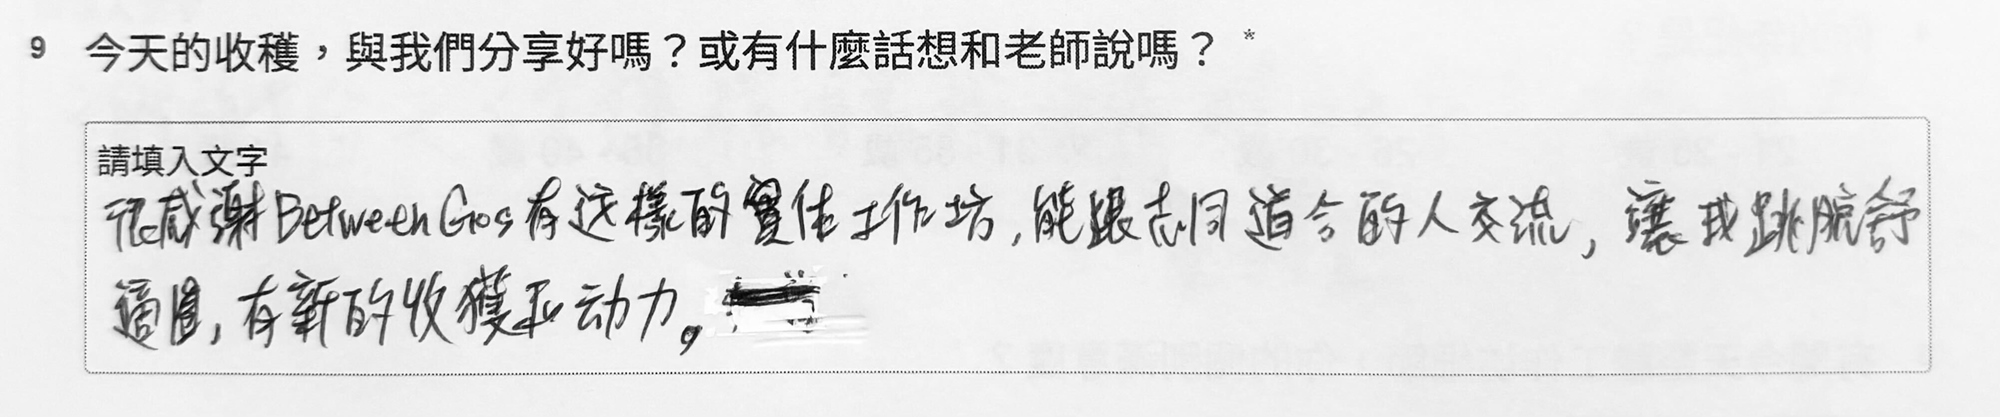 9 今天的收穫，與我們分享好嗎？或有什麼話想和老師說嗎？ *
請填入文字
很感謝Between Gos有这樣的實体工作坊，能跟志同道合的人交流，讓我跳脫舒
適圈，有新的收獲和动力。